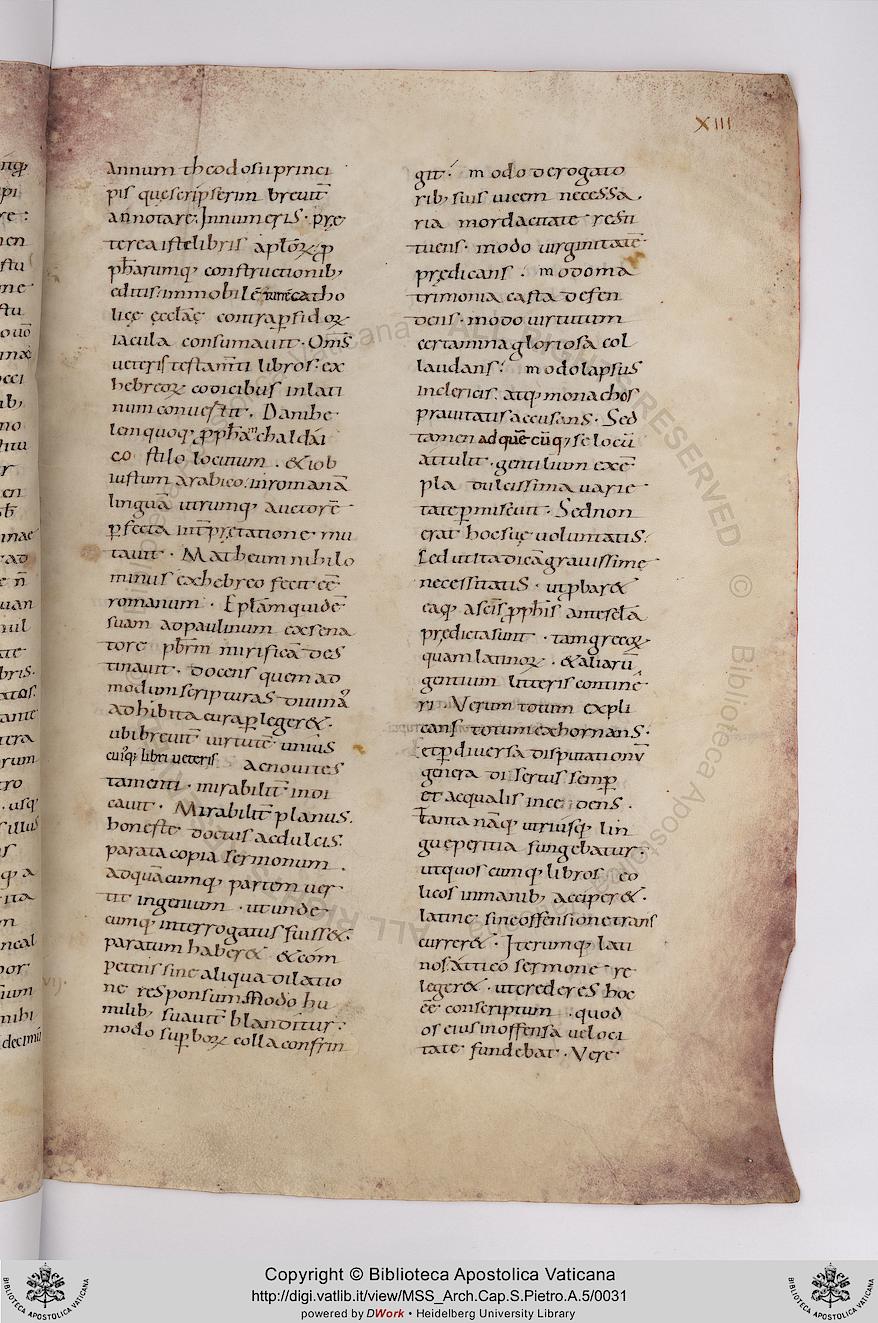 XIII
annum theodosii princi
pis que scripserim breuit̄
annotare. Innumeris · pre
terea iste libris aplõꝝ ꝓ
ph̄arumq; constructionib;
editis: immobilē catho
lice ecclãe contra ꝑfidoꝝ
iacula consumauit · Om̄s
ueteris testam̄ti libros: ex
hebreoꝝ codicibus in lati
num conuertit. Danihe
lem quoq; ꝓph̄am chaldai
co stilo locutum · & iob
iustum arabico: in romanā
linguā utrumq; auctorē
ꝑfecta int̄pretatione mu
tauit · Matheum nihilo
minus ex hebreo fecit eē
romanum · Eptam quidē
suam ad paulinum ex sena
tore pb̄rm mirificā des
tinauit · docens quem ad
modum scripturas diuinas
adhibita cura ꝑlegeret ·
ubi breuit̄ uirtutē unius
cuiq; libri ueteris ac noui tes
tamenti · mirabilit̄ indi
cauit · Mirabilit̄ planus.
honeste doctus ac dulcis.
parata copia sermonum .
ad quācumq; partem uer
tit ingenium · ut unde
cumq; interrogatus fuiss&.
paratum haber& & com
petens sine aliqua dilatio
ne responsum. Modo hu
milib; suauit̄ blanditur:
modo suꝑboꝝ colla confrin
git: modo derogato
rib; suis uicem necessa.
ria mordacitate resti
tuens · modo uirginitatē
predicans . modo ma
trimonia casta defen
dens · modo uirtutum
certamina gloriosa col
laudans: modo lapsus
in clericis: atq; monachos
prauitatis accusans · Sed
tamen ad quē cūq; se locū
attulit · gentilium exē
pla dulcissima uarie
tate ꝑmiscuit · Sed non
erat hoc sue uoluntatis:
Sed ut ita dicā grauissime
necessitatis · ut ꝓbar&
eaq; a scis ꝓph̄is
predicta sunt · tam grecoꝝ
quam latinoꝝ · & aliarū
gentium litteris continē
ri · Verum totum expli
cans totum exhornans ·
et ꝑ diuersa disputationū
genera disertus semꝑ
et aequalis incedens ·
Tanta nāq; utriusq; lin
gue peritia fungebatur ·
ut quoscumq; libros
licos in manib; acciper& ·
latine sine offensione trans
currer& · Iterumq; lati
nos attico sermone re
leger& · ut crederes hoc
eē conscriptum · quod
os eius inoffensa ueloci
tate fundebat · Vere
decimū
Copyright © Biblioteca Apostolica Vaticana
http://digi.vatlib.it/view/MSS_Arch.Cap.S.Pietro.A.5/0031
powered by DWork • Heidelberg University Library